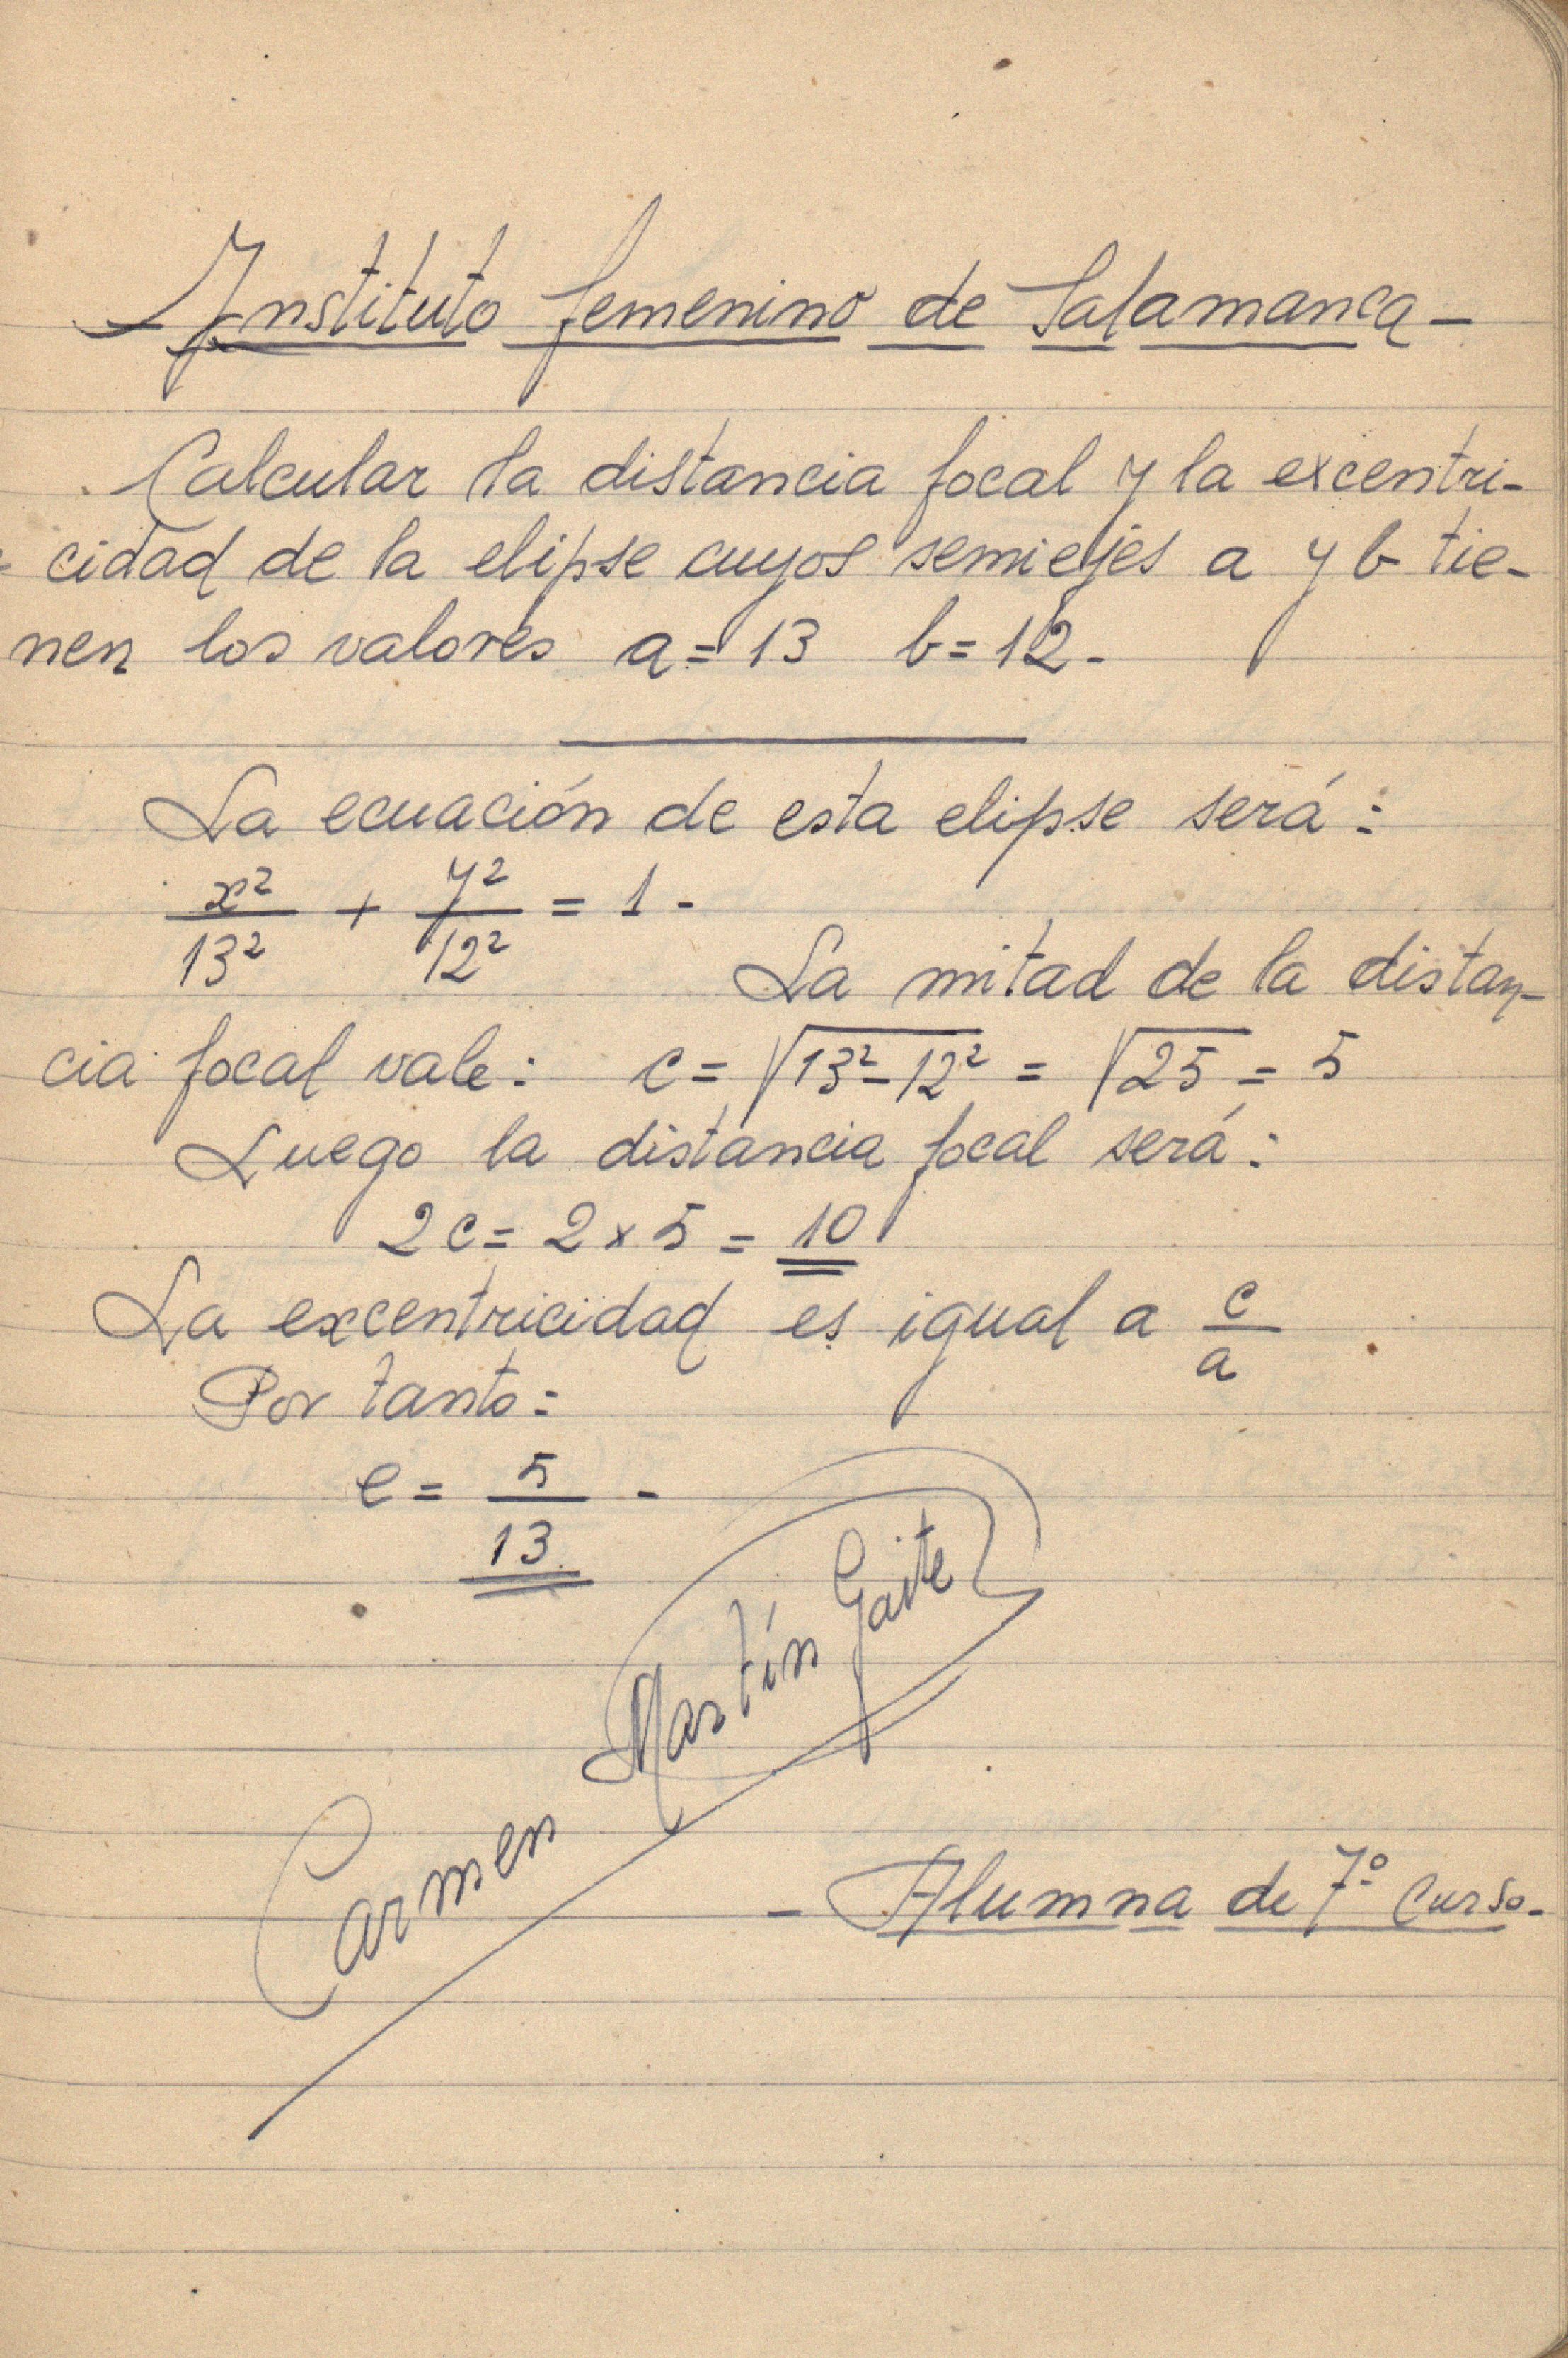 - Instituto femenino de Salamanca -
Calcular la distancia focal y la excentri-
cidad de la elipse cuyos semiejes a y b tie-
nen los valores a = 13 b = 12 -
La ecuación de esta elipse será:
x²/13² + y²/12² = 1 -
La mitad de la distan-
cia focal vale: c = √(13² - 12²) = √25 = 5
Luego la distancia focal será:
2c = 2 × 5 = 10
La excentricidad es igual a c/a
Por tanto:
e = 5/13 -
Carmen Martín Gaite
- Alumna de 7º curso -